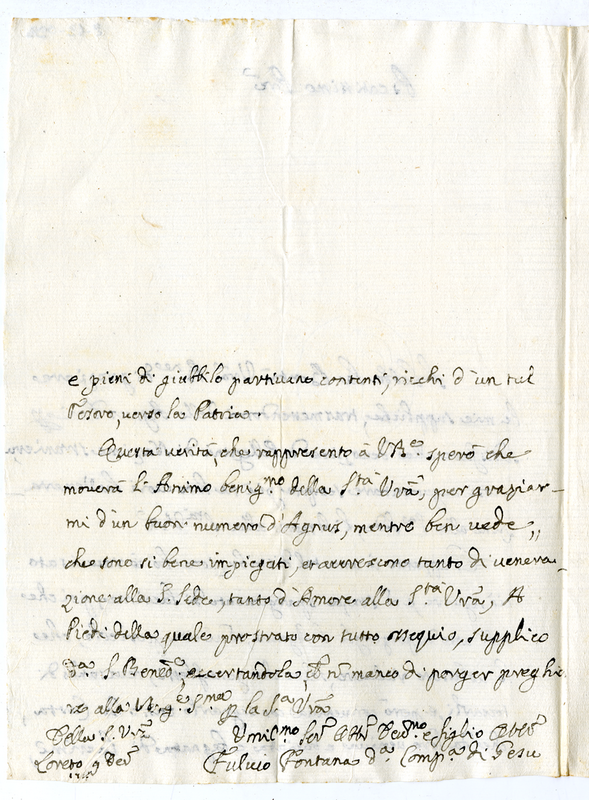 e pieni di giubbilo partivano contenti, ricchi d'un tal
Tesoro, verso la Patria.
Questa verità, che rappresento à VRe. sperò che
moverà l'Animo benig.mo della S.tà Vrã, per graziar-
mi d'un buon numero d'Agnus, mentre ben vede,
che sono si bene impiegati, et accrescono tanto di venera-
zione alla S. Sede, tanto d'Amore alla S.tà Vrã, A
Piedi della quale prostrato con tutto ossequio, supplico
S. Bened.e, accertandola, nõ manco di porger preghie
re alla Verg.e S.ma p la S.a Vrã
Della S. Vrã Umil.mo Ser. Dev.mo e figlio
Loreto 9 Fulvio Fontana d.a Comp.a di Gesu